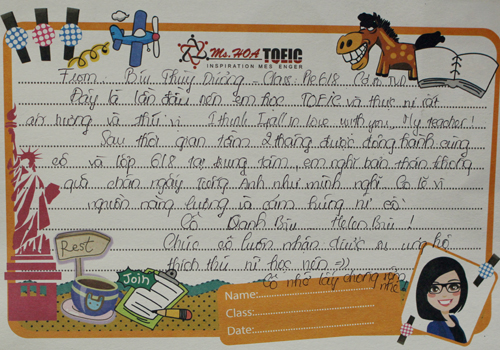 Ms. HOA TOEIC
INSPIRATION MES ENGER
From: Bùi Thùy Dương - Class: Pre 618
Đây là lần đầu nên em học TOEIC và thực rất
ấn tượng và thú vị. I think I fall in love with you, My teacher!
Sau thời gian 2 tháng được đồng hành cùng
cô và lớp 618 tại trung tâm, em nghĩ bản thân không
quá chán ngấy Tiếng Anh như mình nghĩ. Có lẽ vì
nguồn năng lượng và cảm hứng từ cô:
Cô Oanh Bùi Helen Bùi!
Chúc cô luôn nhận được sự ủng hộ
thích thú từ học viên =))
Cô nhớ lấy chồng sớm
nhé
Rest
Join
Name:
Class:
Date: